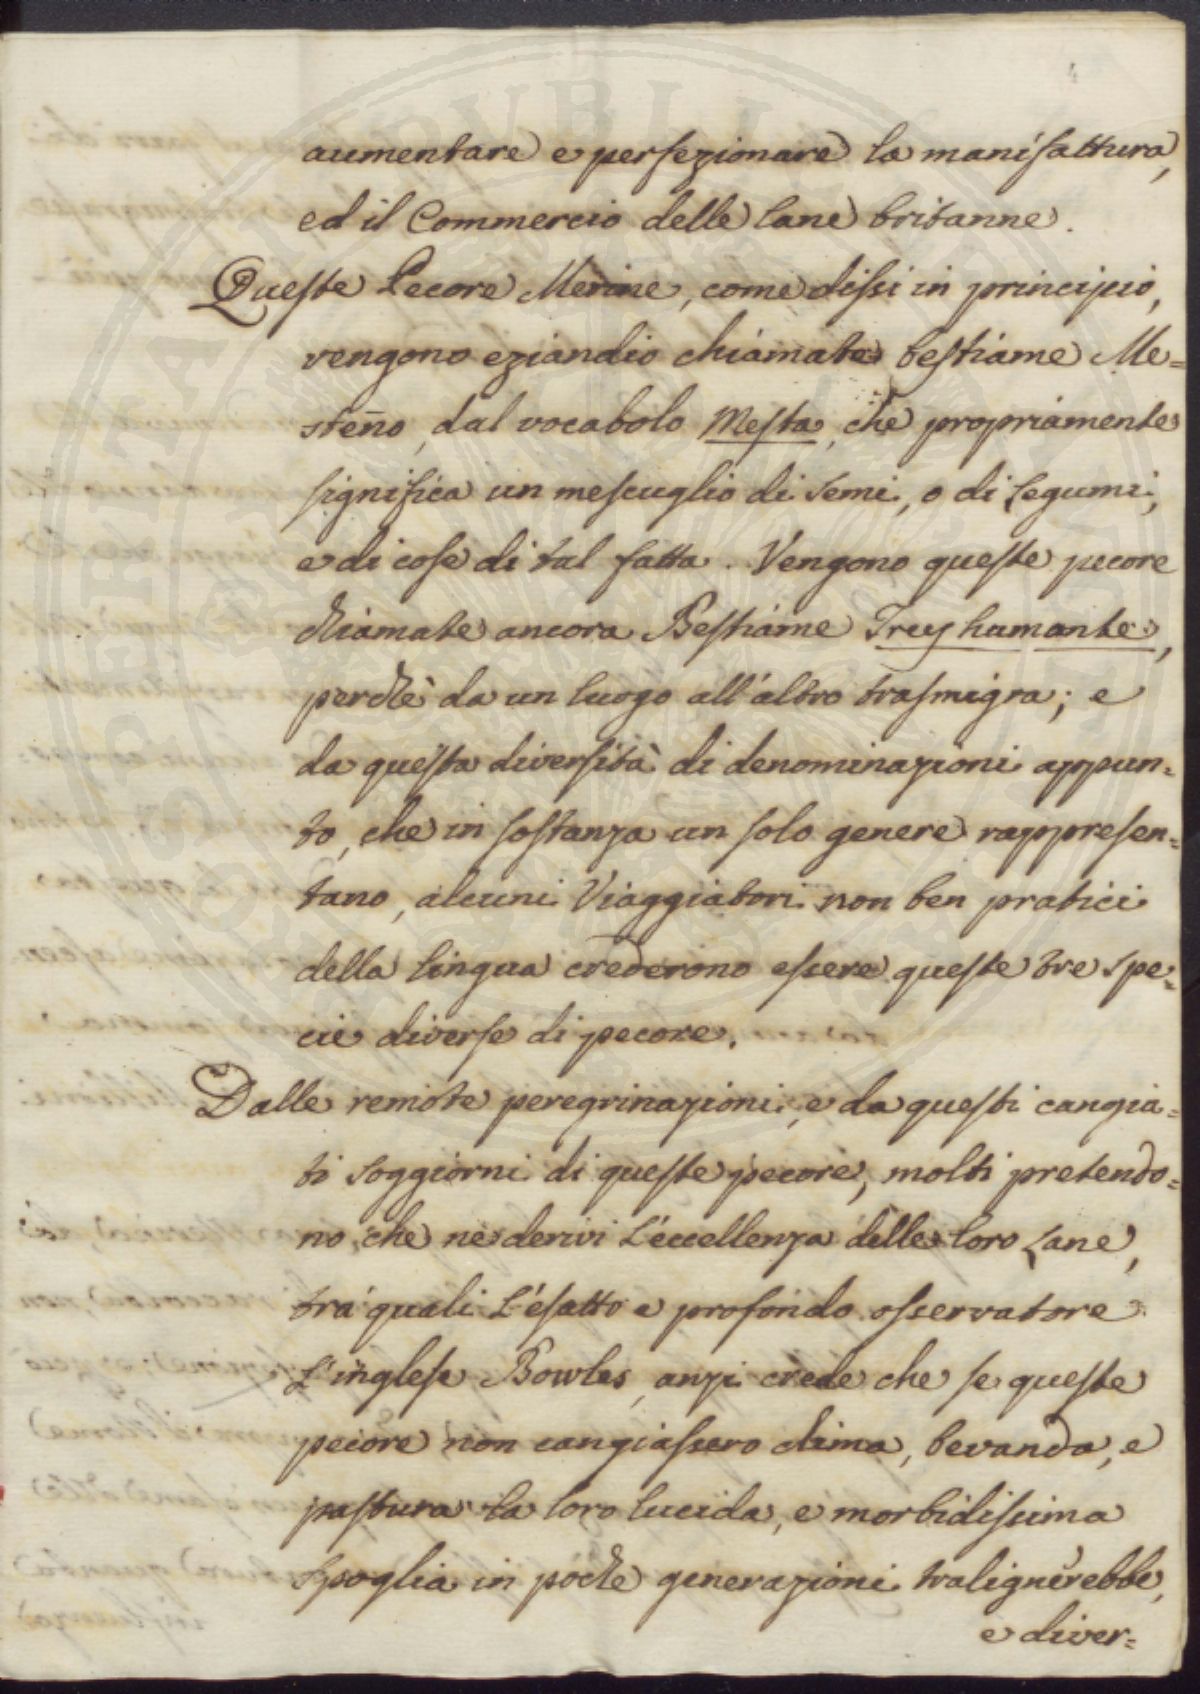 4
aumentare e perfezionare la manifattura,
ed il Commercio delle lane britanne.
Queste Pecore Merine, come dissi in principio,
vengono eziandio chiamate bestiame Me=
steño, dal vocabolo Mesta, che propriamente
significa un mescuglio di semi, o di Legumi,
e di cose di tal fatta. Vengono queste pecore
chiamate ancora Bestiame Treshumante,
perchè da un luogo all'altro trasmigra; e
da questa diversità di denominazioni appun=
to, che in sostanza un solo genere rappresen=
tano, alcuni Viaggiatori non ben pratici
della lingua crederono essere queste tre spe=
cie diverse di pecore.
Dalle remote peregrinazioni, e da questi cangia=
ti soggiorni di queste pecore, molti pretendo=
no che ne derivi l'eccellenza delle loro Lane,
tra' quali L'esatto e profondo osservatore
L'inglese Bowles, anzi crede che se queste
pecore non cangiassero clima, bevanda, e
pastura la loro lucida, e morbidissima
spoglia in poche generazioni tralignerebbe,
e diver=